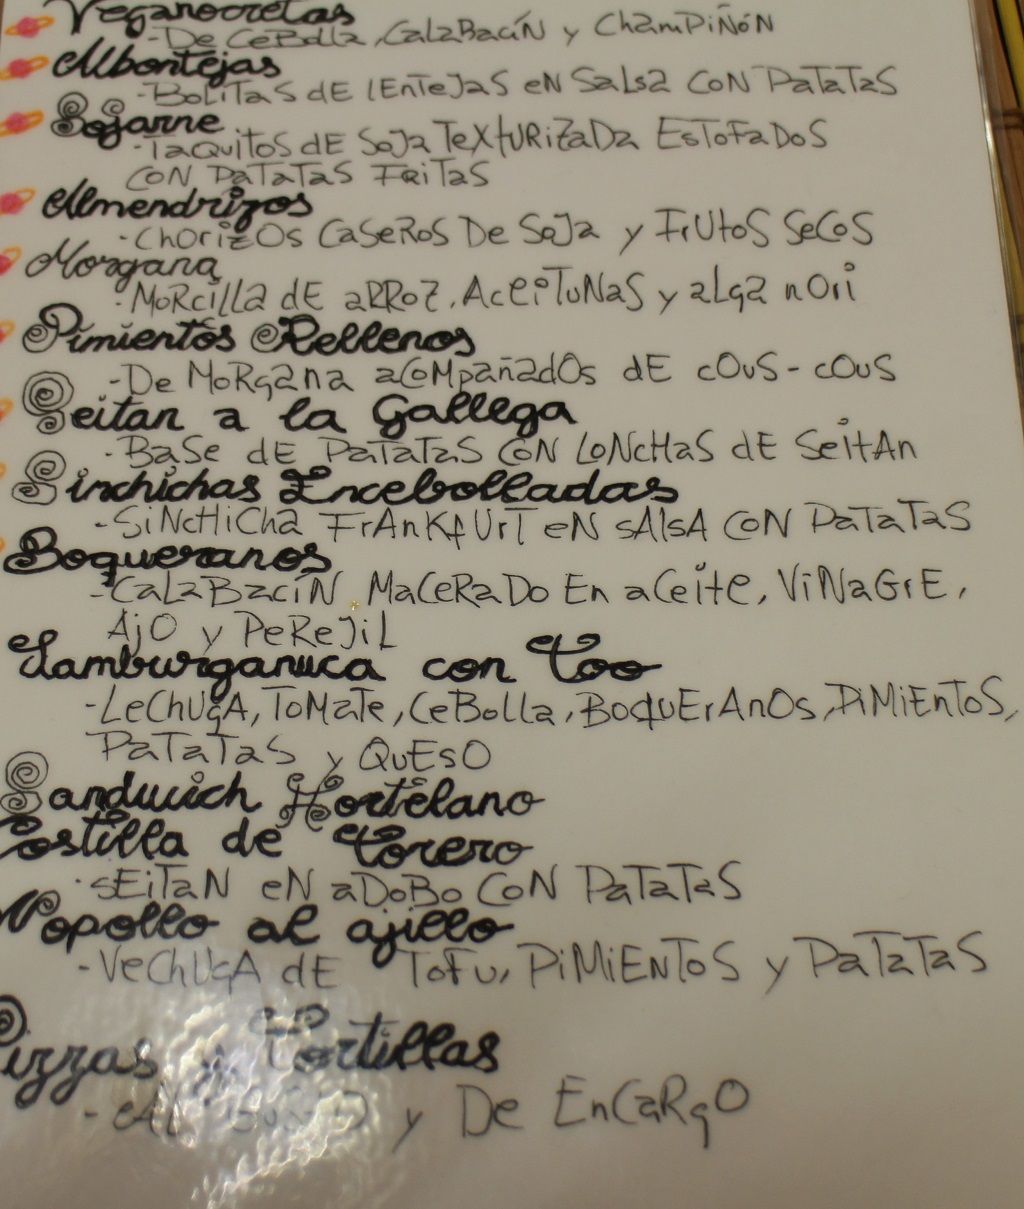 Veganocretas
-De Cebolla, Calabacín y Champiñón
Albontejas
-Bolitas de lentejas en salsa con patatas
Sojarne
-Taquitos de soja texturizada estofados
con patatas fritas
Almendrizos
-Chorizos caseros de soja y frutos secos
Morgana
-Morcilla de arroz, aceitunas y alga nori
Pimientos Rellenos
-De Morgana acompañados de cous-cous
Seitan a la Gallega
-Base de patatas con lonchas de seitan
Sinchichas Encebolladas
-Sinchicha Frankfurt en salsa con patatas
Boqueranos
-Calabacín macerado en aceite, vinagre,
ajo y perejil
Hamburganuca con Too
-Lechuga, tomate, cebolla, boqueranos, pimientos,
patatas y queso
Sandwich Hortelano
Costilla de Torero
-Seitan en adobo con patatas
Nopollo al ajillo
-Vechuga de tofu, pimientos y patatas
Pizzas y Tortillas
-Al gusto y de encargo